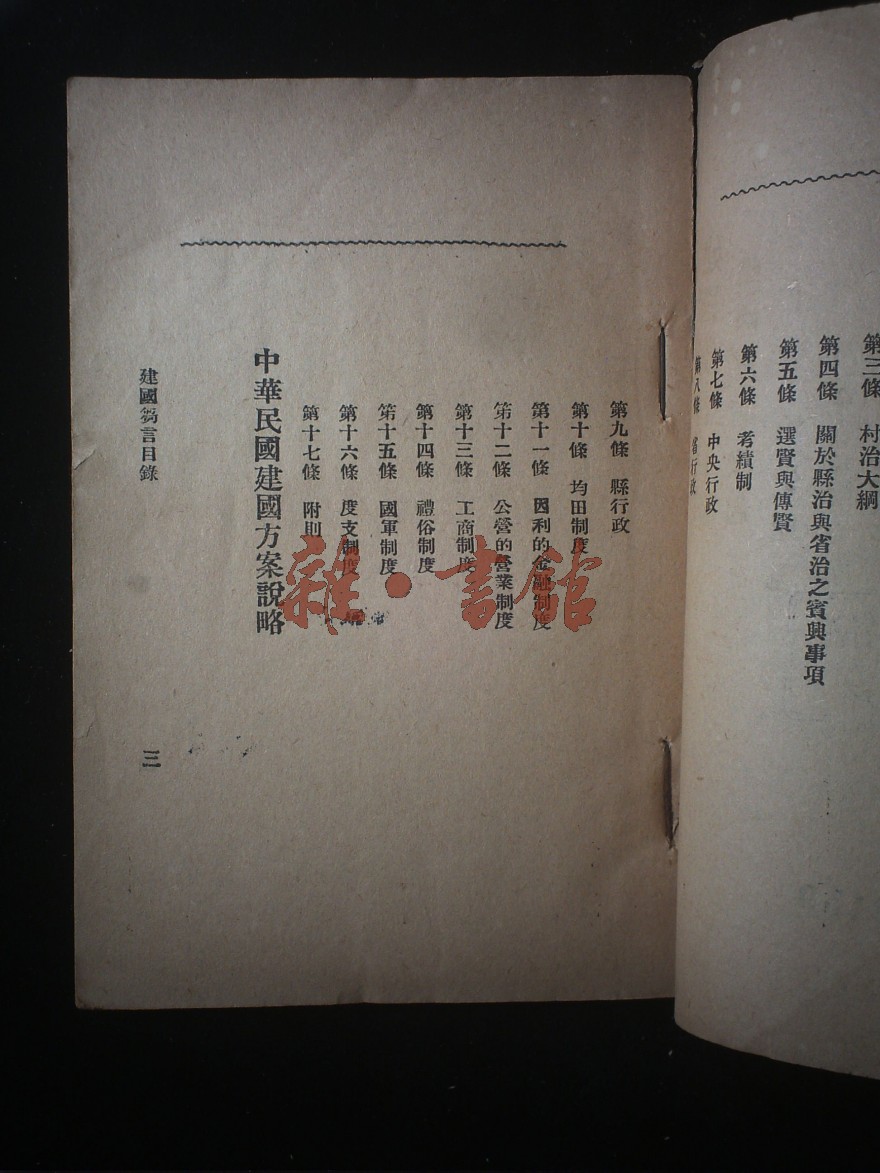 第三條 村治大綱
第四條 關於縣治與省治之賓興事項
第五條 選賢與傳賢
第六條 考績制
第七條 中央行政
第八條 省行政
第九條 縣行政
第十條 均田制度
第十一條 因利的金融制度
第十二條 公營的營業制度
第十三條 工商制度
第十四條 禮俗制度
第十五條 國軍制度
第十六條 度支制度
第十七條 附則
中華民國建國方案說略
建國芻言目錄
三
雜·書館